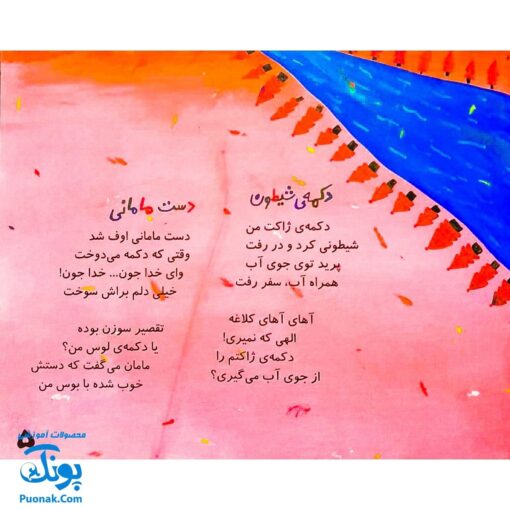 دکمه‌ی شیطون
دکمه‌ی ژاکت من
شیطونی کرد و در رفت
پرید توی جوی آب
همراه آب، سفر رفت
آهای آهای کلاغه
الهی که نمیری!
دکمه‌ی ژاکتم را
از جوی آب می‌گیری؟
دست مامانی
دست مامانی اوف شد
وقتی که دکمه می‌دوخت
وای خدا جون... خدا جون!
خیلی دلم براش سوخت
تقصیر سوزن بوده
یا دکمه‌ی لوس من؟
مامان می‌گفت که دستش
خوب شده با بوس من
محصولات آموزشی
پونک
Puonak.Com